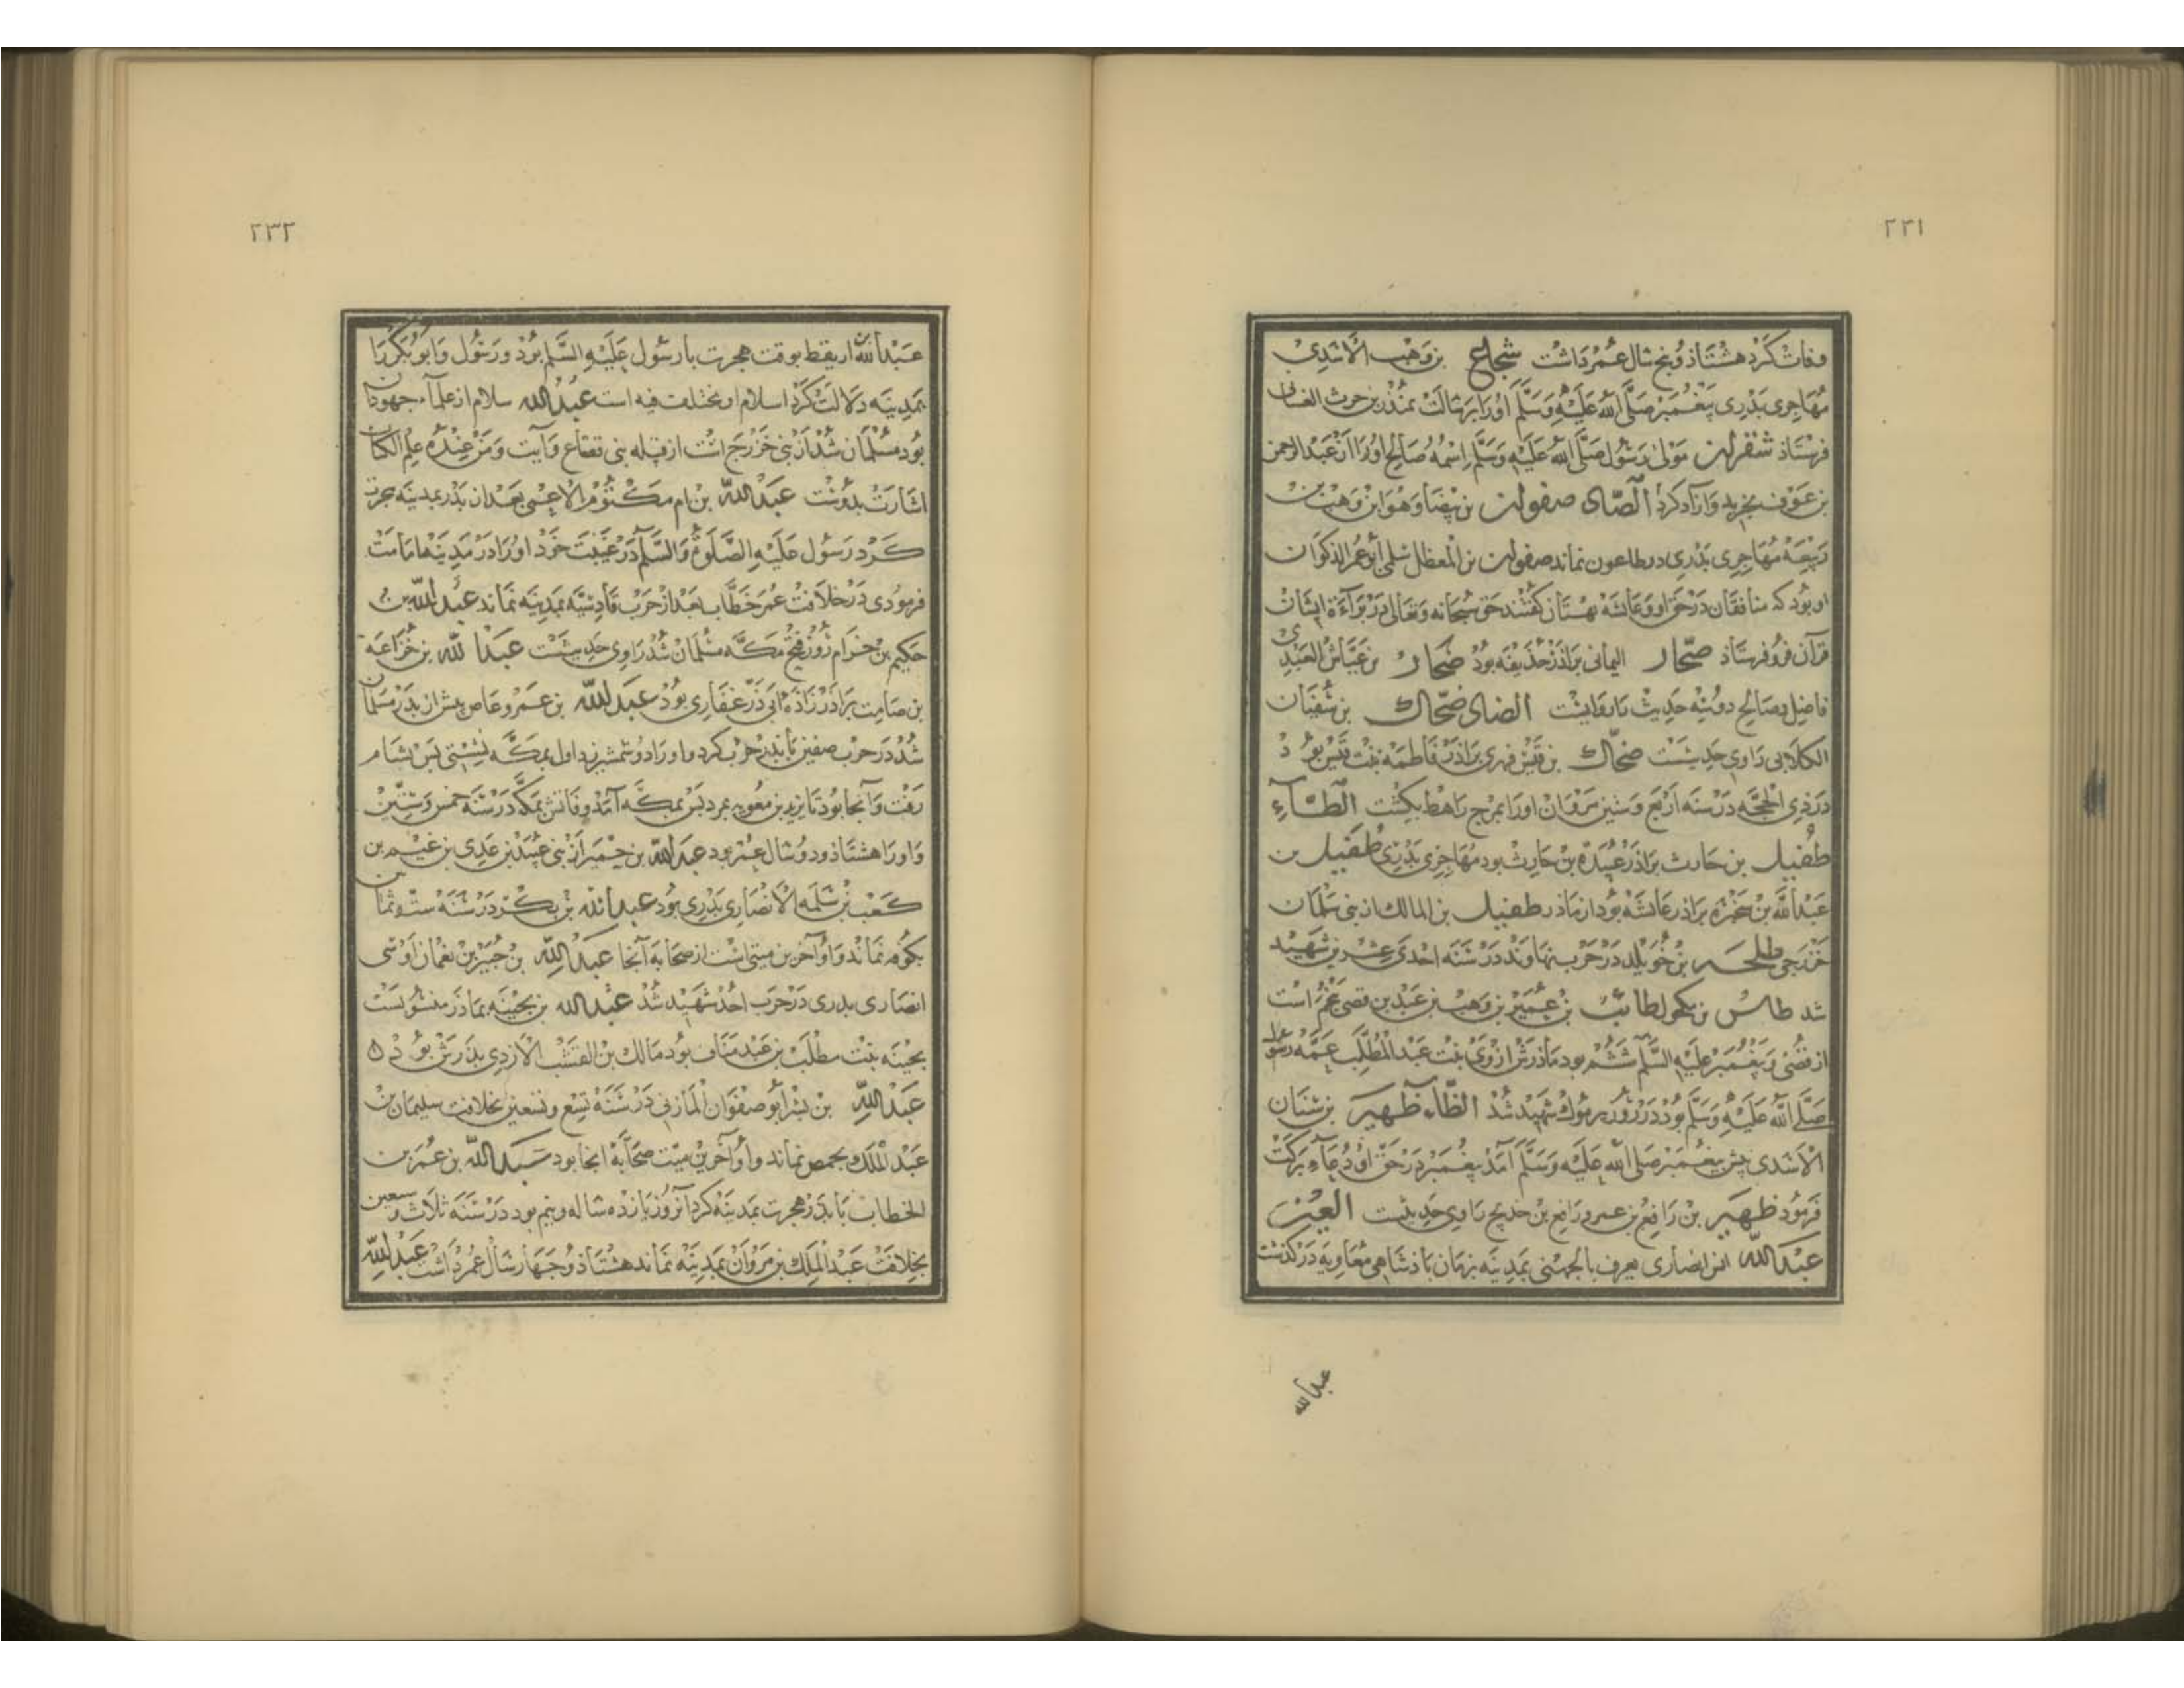 ٢٣١
وفاتش كرد هشتاذ و پنج سال عمر داشت شجاع بن وهب الاسدی
مهاجری بدری پیغمبر صلی الله علیه وسلم اورا برسالت بمنذر بن حرث الغسانی
فرستاذ شقران مولی رسول صلی الله علیه وسلم اسمه صالح اورا از عبد الرحمن
بن عوف بخرید و آزاد کرد الصاد صفوان بن بیضا وهو ابن وهب بن
ربیعه مهاجری بدری در طاعون نماند صفوان بن المعطل سلمی ابو عمر الذکوان
او بود که منافقان در حق او و عایشه بهتان گفتند حق سبحانه وتعالی در برآءة ایشان
قرآن فرو فرستاذ صحار الیمانی براذر حذیفه بود صحار بن عیاش العبدی
فاضل بصالح دویته حدیث
الضاد ضحاك بن سفیان
الکلابی راوی حدیثست ضحاك بن قیس فهری براذر فاطمه بنت قیس بود
در ذی الحجه در سنه اربع وستین مروان اورا بمرج راهط بکشت الطآء
طفیل بن حارث براذر عبیدة بن حارث بود مهاجری بدری طفیل بن
عبد الله بن سخبره براذر عایشه بود از ماذر طفیل بن المالك از بنی سلمان
خزرجی طلحه بن خویلد در حرب نهاوند در سنه احدی عشرین شهید
شد طالب بن عمیر بن وهب بن عبد بن قصی عم است
از قصی و پیغمبر علیه السلم ششم بود ماذرش اروی بنت عبد المطلب عمه رسول
صلی الله علیه وسلم بود در روز یرموك شهید شد الظاء ظهیر بن سنان
الاسدی پیش پیغمبر صلی الله علیه وسلم آمد پیغمبر در حق او دعاء برکت
فرمود ظهیر بن رافع بن عم رافع بن خدیج راوی حدیثست العین
عبد الله انس انصاری یعرف بالجهنی بمدینه بزمان باذشاهی معاویه درگذشت
عبد الله
٢٣٢
عبد الله اریقط بوقت هجرت با رسول علیه السلم بود و رسول و ابوبکر را
بمدینه دلالت کرد اسلام او مختلف فیه است عبد الله سلام از علمآء جهودان
بود مسلمان شد از بنی خزرج است از قبله بنی تقفاع و آیت ومن عنده علم الکتاب
اشارت بدوست عبد الله بن ام مکتوم الاعمی بعد از بدر بمدینه هجرت
کرد رسول علیه الصلوة والسلم در غیبت خود اورا در مدینه امامت
فرمودی در خلافت عمر خطاب بعد از حرب قادسیه بمدینه نماند عبد الله بن
حکیم بن حزام روز فتح مکه مسلمان شد راوی حدیثست عبد الله بن خزاعة
بن صامت براذرزاذه ابی ذر غفاری بود عبد الله بن عمرو عاص پیش از پدر مسلمان
شد در حرب صفین با پدر حرب کرد و اورا دو شمشیر زد اول بمکه نشستی پس بشام
رفت و آنجا بود تا یزید بن معویه بمرد پس بمکه آمد وفاتش بمکه در سنه خمس وستین
و اورا هشتاذ و دو سال عمر بود عبد الله بن حمیر از بنی عبید بن عدی بن غیم بن
کعب بن سلمه الانصاری بدری بود عبد الله بن بکر در سنه ست وثمانین
بکوفه نماند و او آخرین میتی است از صحابه آنجا عبد الله بن جبیر بن نعمان اوسی
انصاری بدری در حرب احد شهید شد عبد الله بن بحینه بماذر منسوبست
بحینه بنت مطلب بن عبد مناف بود مالك بن القشب الازدی پدرش بود ه
عبد الله بن بشر ابو صفوان المازنی در سنه تسع وتسعین بخلافت سلیمان بن
عبد الملك بحمص نماند و او آخرین میت صحابه آنجا بود عبد الله بن عمر بن
الخطاب با پدر هجرت بمدینه کرد آنروز یازده ساله و نیم بود در سنه ثلاث وسبعین
بخلافت عبد الملك بن مروان بمدینه نماند هشتاذ و چهار سال عمر داشت عبد الله